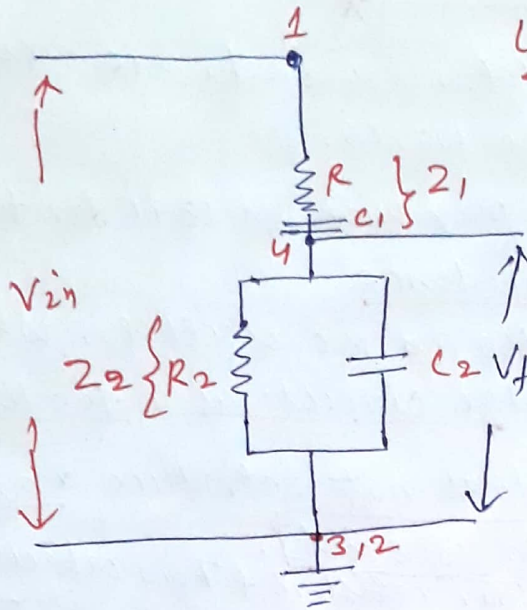 1
R } Z1
C1
4
Vin
Z2 { R2
C2 Vf
3,2